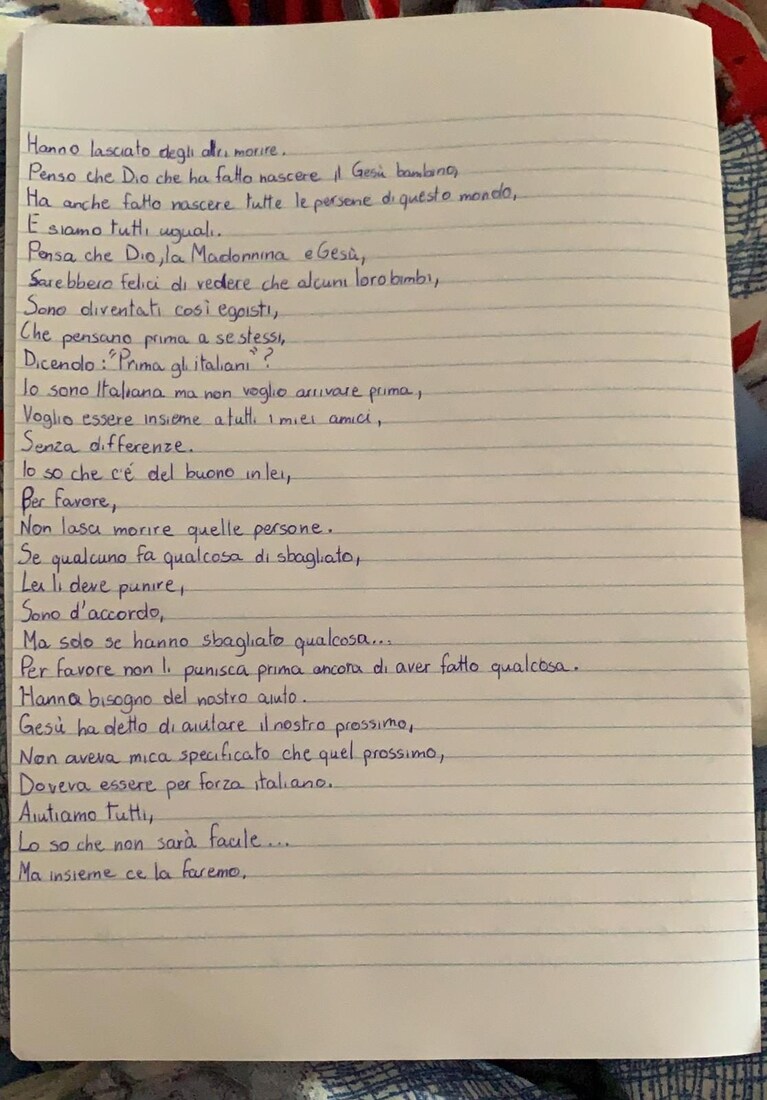 Hanno lasciato degli altri morire.
Penso che Dio che ha fatto nascere il Gesù bambino,
Ha anche fatto nascere tutte le persone di questo mondo,
E siamo tutti uguali.
Pensa che Dio, la Madonnina e Gesù,
Sarebbero felici di vedere che alcuni loro bimbi,
Sono diventati così egoisti,
Che pensano prima a se stessi,
Dicendo: "Prima gli italiani"?
Io sono Italiana ma non voglio arrivare prima,
Voglio essere insieme a tutti i miei amici,
Senza differenze.
Io so che c'é del buono in lei,
Per favore,
Non lasci morire quelle persone.
Se qualcuno fa qualcosa di sbagliato,
Lei li deve punire,
Sono d'accordo,
Ma solo se hanno sbagliato qualcosa...
Per favore non li punisca prima ancora di aver fatto qualcosa.
Hanno bisogno del nostro aiuto.
Gesù ha detto di aiutare il nostro prossimo,
Non aveva mica specificato che quel prossimo,
Doveva essere per forza italiano.
Aiutiamo tutti,
Lo so che non sarà facile...
Ma insieme ce la faremo.